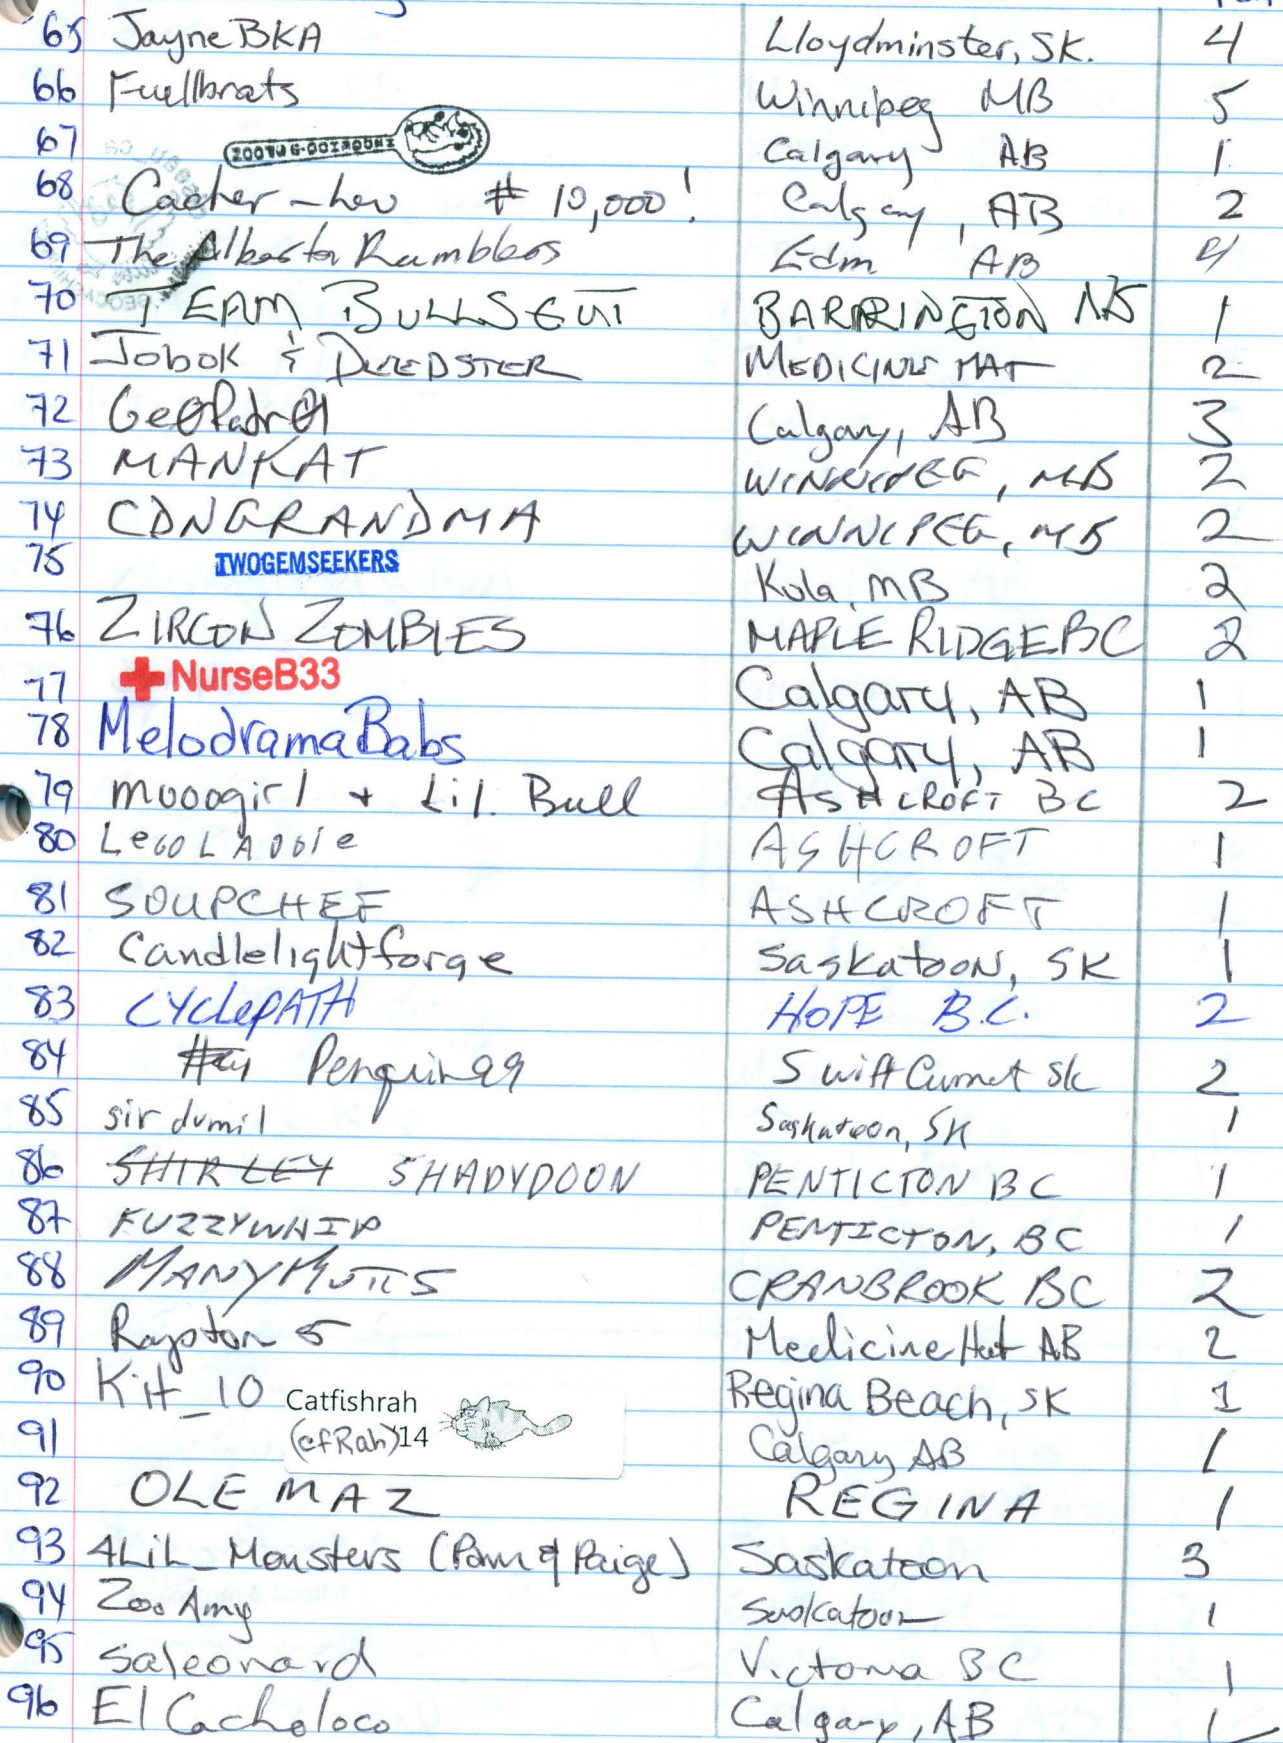 65 JayneBKA Lloydminster, SK. 4
66 Fuellbrats Winnipeg MB 5
67 Calgary AB 1
68 Cacher-Lew # 10,000! Calgary, AB 2
69 The Alberta Ramblers Edm AB 4
70 TEAM BULLSEUT BARRINGTON NS 1
71 Jobok & DEEDSTER MEDICINE HAT 2
72 GeoPatrol Calgary, AB 3
73 MANKAT WINNIPEG, MB 2
74 CDNGRANDMA WINNIPEG, MB 2
75 TWOGEMSEEKERS Kola, MB 2
76 ZIRCON ZOMBIES MAPLE RIDGE BC 2
77 NurseB33 Calgary, AB 1
78 MelodramaBabs Calgary, AB 1
79 mooogirl + Lil. Bull ASHCROFT BC 2
80 LegoLaddie ASHCROFT 1
81 SOUPCHEF ASHCROFT 1
82 Candlelightforge Saskatoon, SK 1
83 CYCLEPATH HOPE B.C. 2
84 Penguin99 Swift Current SK 2
85 sir dumil Saskatoon, SK 1
86 SHIRLEY SHADYDOON PENTICTON BC 1
87 FUZZYWHIP PENTICTON, BC 1
88 MANYMUTTS CRANBROOK BC 2
89 Rayston 5 Medicine Hat AB 2
90 Kit_10 Regina Beach, SK 1
Catfishrah
91 (cfRah)14 Calgary AB 1
92 OLE MAZ REGINA 1
93 4LiL_Monsters (Pam & Paige) Saskatoon 3
94 Zoo Amy Saskatoon 1
95 Saleonard Victoria BC 1
96 El Cacholoco Calgary, AB 1